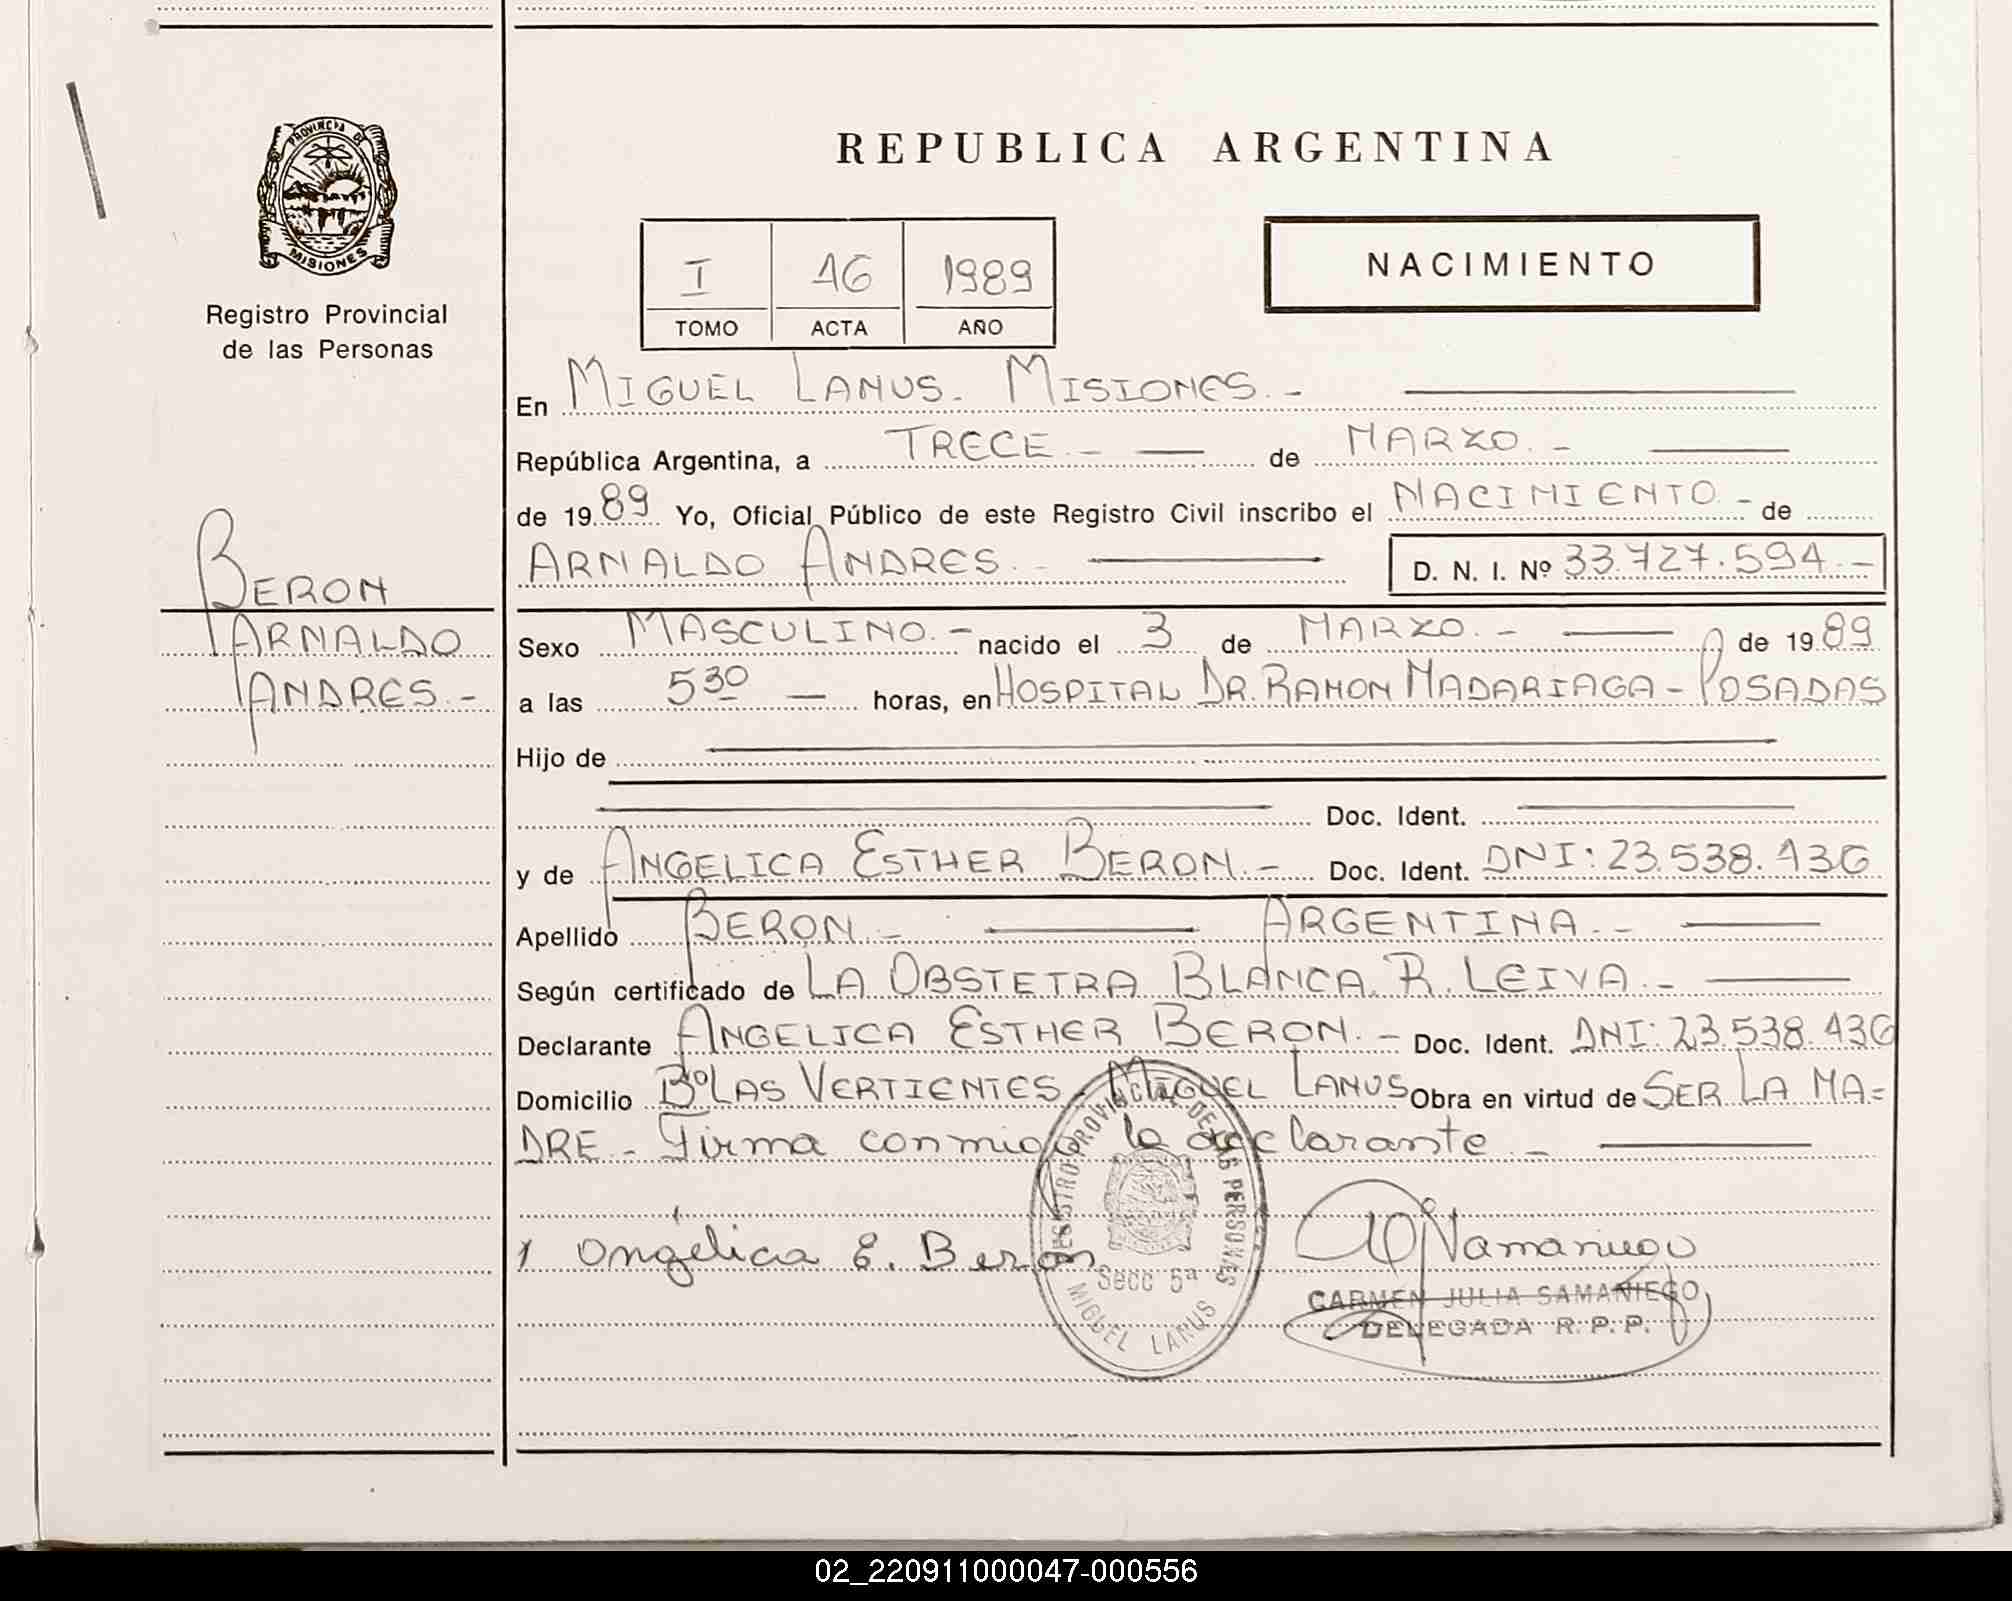 REPUBLICA ARGENTINA
PROVINCIA DE
MISIONES
Registro Provincial
de las Personas
I 16 1989
TOMO ACTA AÑO
NACIMIENTO
En MIGUEL LANUS. MISIONES.-
República Argentina, a TRECE.- de MARZO.-
de 1989 Yo, Oficial Público de este Registro Civil inscribo el NACIMIENTO- de
ARNALDO ANDRES.- D. N. I. Nº 33.727.594.-
BERON
ARNALDO
ANDRES.-
Sexo MASCULINO.- nacido el 3 de MARZO.- de 1989
a las 5 30 horas, en HOSPITAL DR. RAMON MADARIAGA - POSADAS
Hijo de
Doc. Ident.
y de ANGELICA ESTHER BERON.- Doc. Ident. DNI: 23.538.136
Apellido BERON.- ARGENTINA.-
Según certificado de LA OBSTETRA BLANCA R. LEIVA.-
Declarante ANGELICA ESTHER BERON.- Doc. Ident. DNI: 23.538.136
Domicilio Bº LAS VERTIENTES. MIGUEL LANUS Obra en virtud de SER LA MA=
DRE.- Firma conmigo la declarante.-
Angélica E. Beron
REGISTRO PROVINCIAL DE LAS PERSONAS
Secc 5ª
MIGUEL LANUS
CARMEN JULIA SAMANIEGO
DELEGADA R. P. P.
02_220911000047-000556